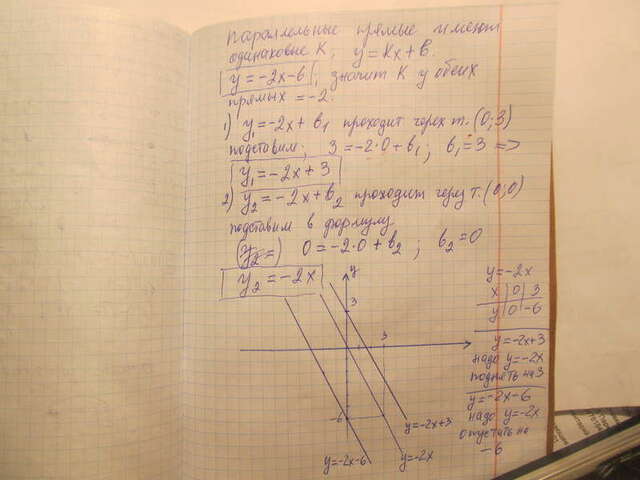 Параллельные прямые имеют
одинаковые К, y=Kx+b.
y=-2x-6, значит К у обеих
прямых =-2.
1) y₁=-2x+b₁ проходит через т.(0;3)
подставим; 3=-2·0+b₁; b₁=3 =>
y₁=-2x+3
2) y₂=-2x+b₂ проходит через т.(0;0)
подставим в формулу
(y₂=) 0=-2·0+b₂; b₂=0
y₂=-2x
y
3
3
x
-6
y=-2x+3
y=-2x-6
y=-2x
y=-2x
x|0|3
y|0|-6
y=-2x+3
надо y=-2x
поднять на 3
y=-2x-6
надо y=-2x
опустить на
-6